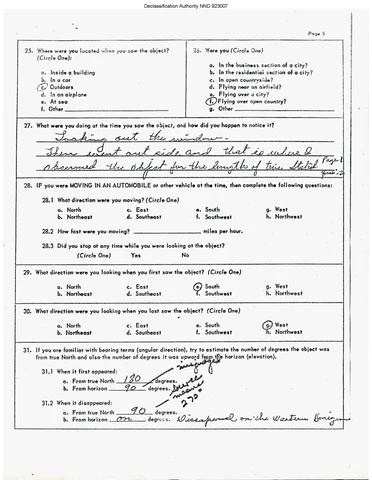 Declassification Authority NND 923007
Page 5
25. Where were you located when you saw the object?
(Circle One):
a. Inside a building
b. In a car
c. Outdoors
d. In an airplane
e. At sea
f. Other
26. Were you (Circle One)
a. In the business section of a city?
b. In the residential section of a city?
c. In open countryside?
d. Flying near an airfield?
e. Flying over a city?
f. Flying over open country?
g. Other
27. What were you doing at the time you saw the object, and how did you happen to notice it?
Looking out the window.
Then went out side and that is where I
observed the object for the lengths of time Stated Page 1
28. IF you were MOVING IN AN AUTOMOBILE or other vehicle at the time, then complete the following questions:
28.1 What direction were you moving? (Circle One)
a. North c. East e. South g. West
b. Northeast d. Southeast f. Southwest h. Northwest
28.2 How fast were you moving? miles per hour.
28.3 Did you stop at any time while you were looking at the object?
(Circle One) Yes No
29. What direction were you looking when you first saw the object? (Circle One)
a. North c. East e. South g. West
b. Northeast d. Southeast f. Southwest h. Northwest
30. What direction were you looking when you last saw the object? (Circle One)
a. North c. East e. South g. West
b. Northeast d. Southeast f. Southwest h. Northwest
31. If you are familiar with bearing terms (angular direction), try to estimate the number of degrees the object was
from true North and also the number of degrees it was upward from the horizon (elevation).
31.1 When it first appeared:
a. From true North 180 degrees.
b. From horizon 90 degrees.
means
270°
31.2 When it disappeared:
a. From true North 90 degrees.
b. From horizon on degrees. Disappeared on the Western Horizon